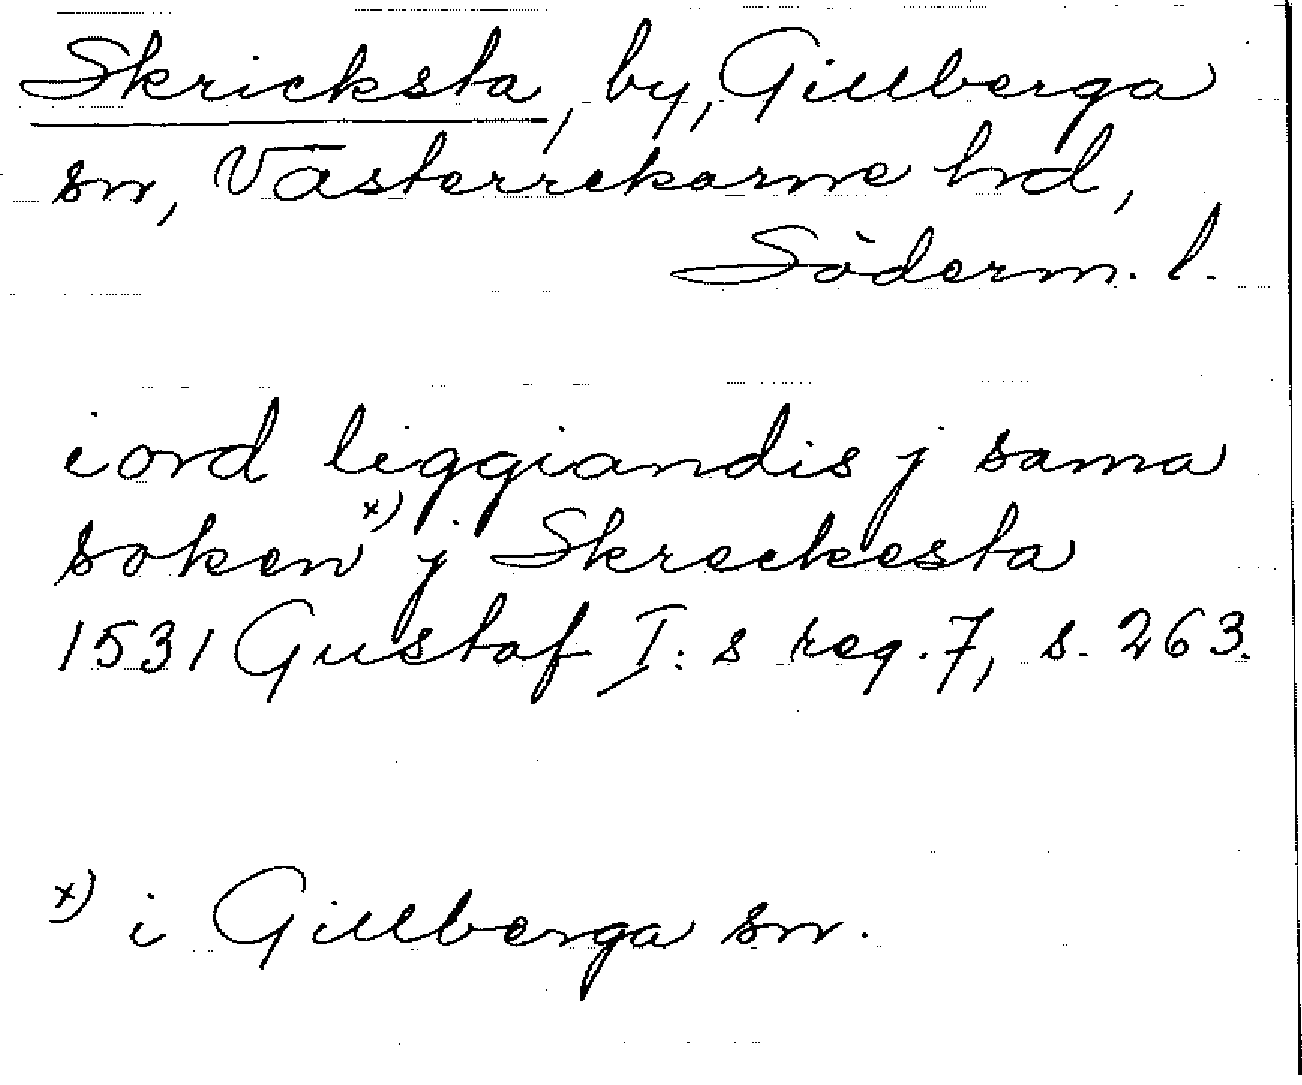 Skricksta, by, Gillberga
sn, Västerrekarne hrd,
Söderm. l.
iord liggiandis j sama
soken x) j Skreckesta
1531 Gustaf I:s reg. 7, s. 263.
x) i Gillberga sn.